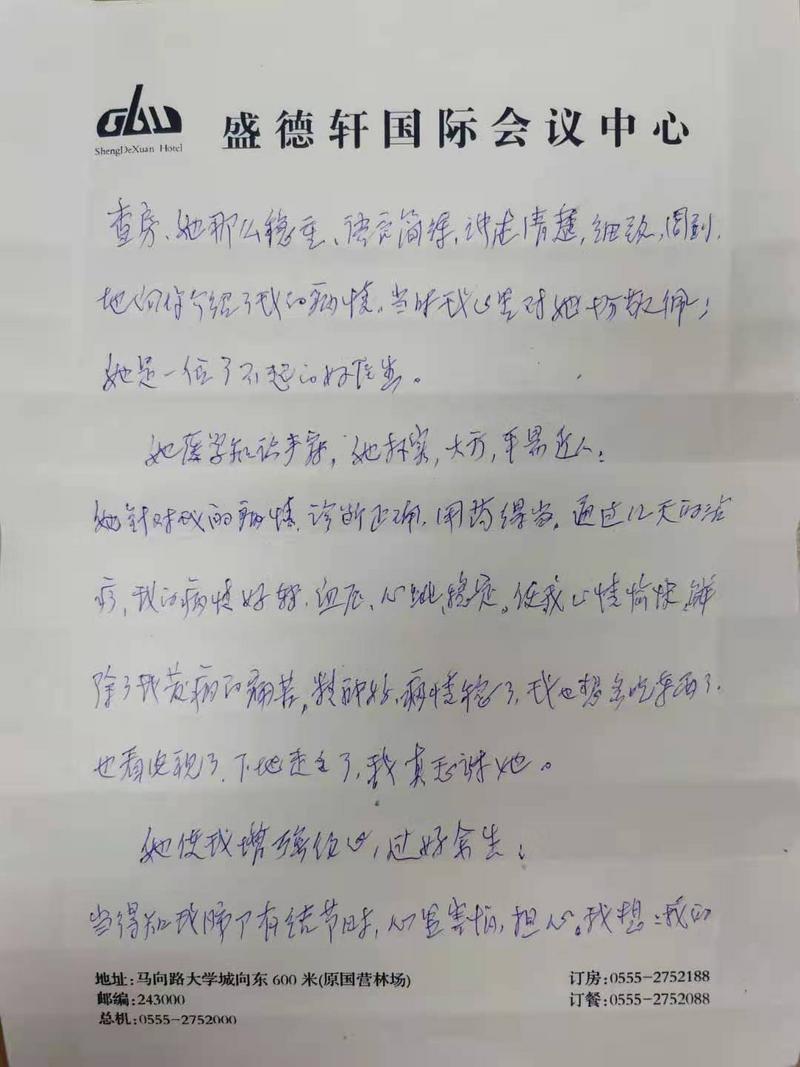 ShengDeXuan Hotel
盛德轩国际会议中心
查房、她那么稳重、语言简练,讲述清楚,细致,周到,
地向你介绍了我的病情,当时我心里对她十分敬佩;
她是一位了不起的好医生。
她医学知识丰富,她朴实,大方,平易近人;
她针对我的病情,诊断正确,用药得当,通过12天的治
疗,我的病情好转,血压、心跳、稳定。使我心情愉快,解
除了我发病的痛苦,精神好,病情稳了,我也想多吃东西了,
也看电视了,下地走走了,我真感谢她。
她使我增强信心,过好余生;
当得知我肺下有结节时,心里害怕,担心。我想:我的
地址:马向路大学城向东600米(原国营林场)
订房:0555-2752188
邮编:243000
订餐:0555-2752088
总机:0555-2752000